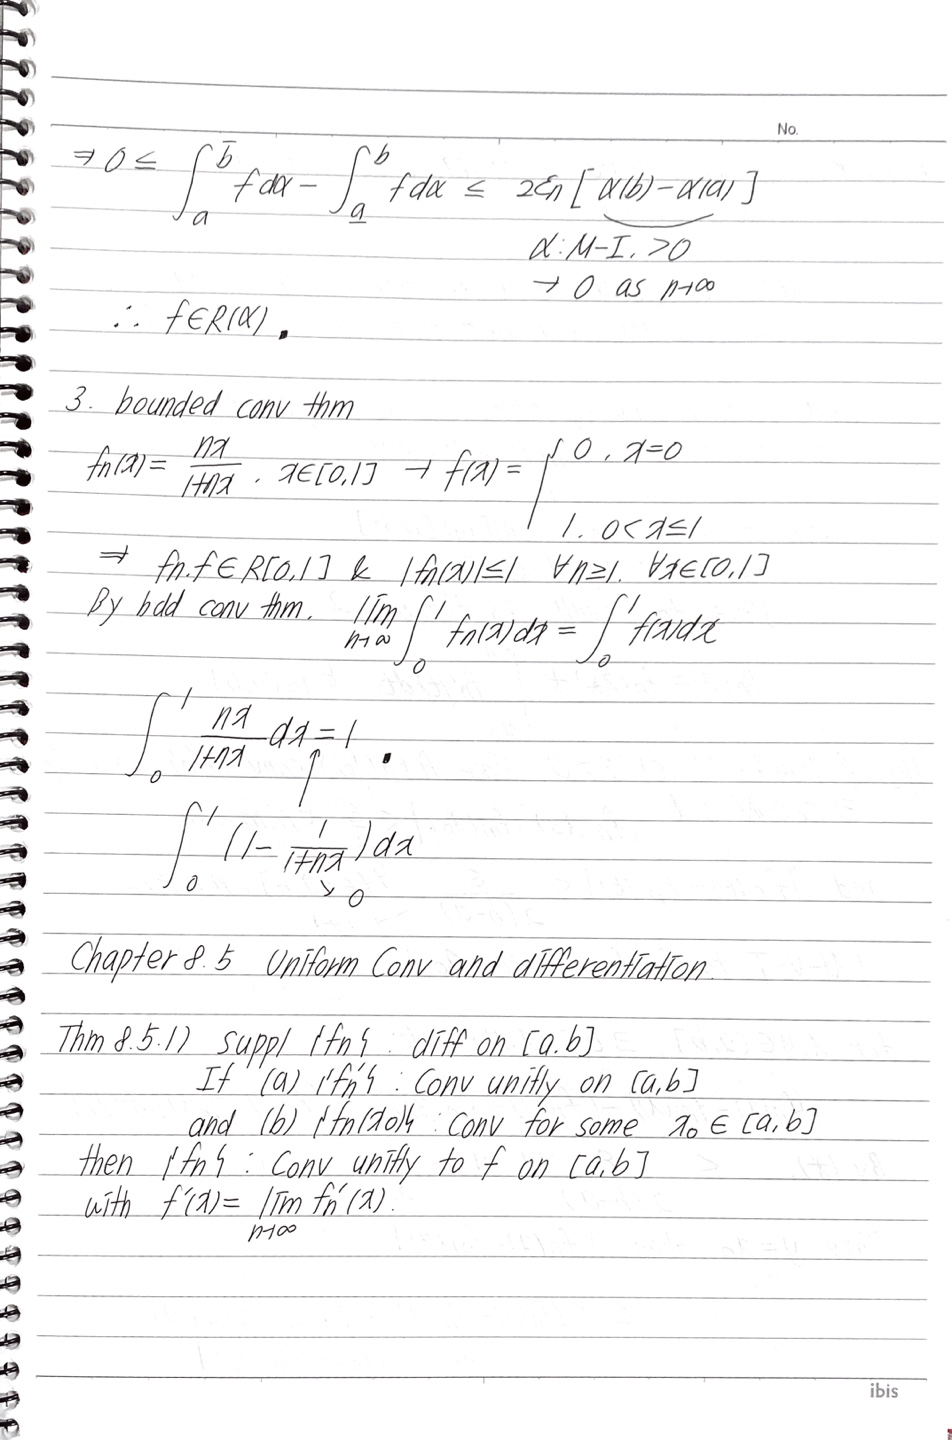 No.
⇒ 0 ≤ ∫_a^b̄ f dα − ∫_a̲^b f dα ≤ 2εn [α(b) − α(a)]
α : M-I, >0
→ 0 as n→∞
∴ f∈R(α).
3. bounded conv thm
fn(x) = nx/(1+nx), x∈[0,1] → f(x) = { 0, x=0
1, 0<x≤1
⇒ fn, f∈R[0,1] & |fn(x)|≤1 ∀n≥1, ∀x∈[0,1]
By bdd conv thm. lim_{n→∞} ∫_0^1 fn(x)dx = ∫_0^1 f(x)dx
∫_0^1 nx/(1+nx) dx = 1 .
↑
∫_0^1 (1 − 1/(1+nx)) dx
↘ 0
Chapter 8.5 Uniform Conv and differentiation.
Thm 8.5.1) supp| {fn} : diff on [a,b]
If (a) {fn'} : Conv unifly on [a,b]
and (b) {fn(x0)} : Conv for some x0 ∈ [a,b]
then {fn} : Conv unifly to f on [a,b]
with f'(x) = lim_{n→∞} fn'(x).
ibis